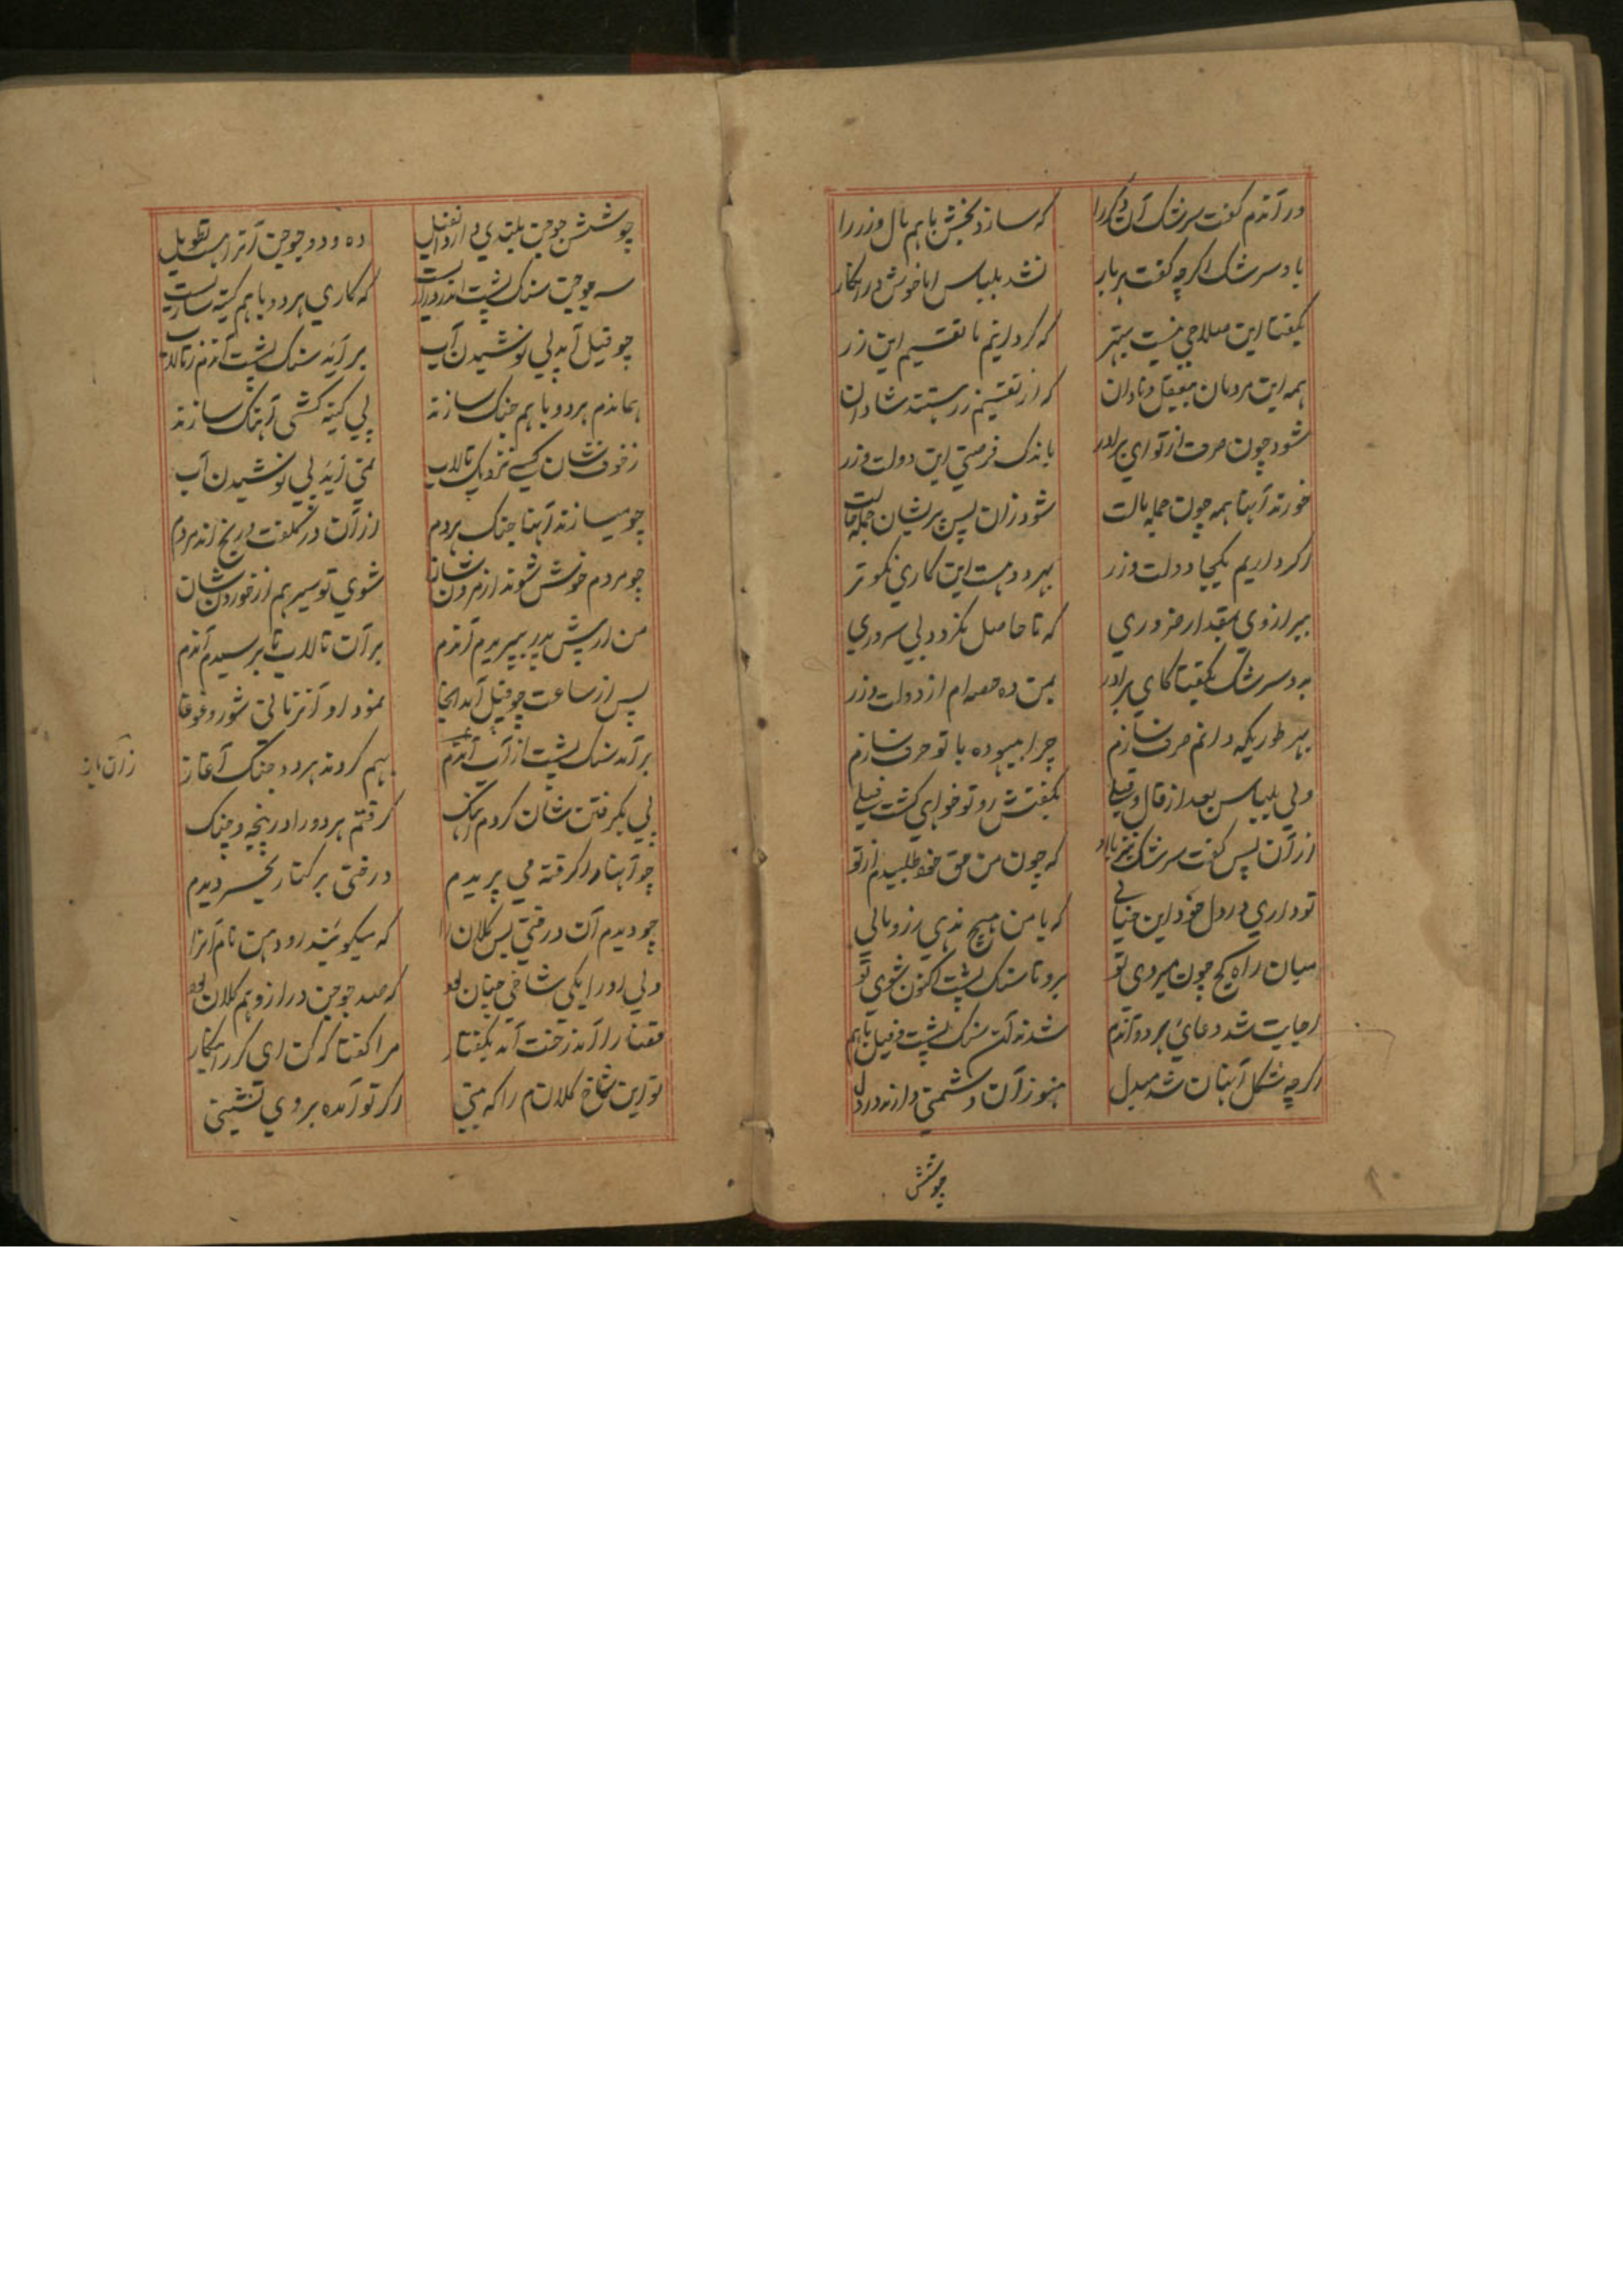 در آندم گفت سرشک آن دگر را که سازد بخش باهم مال و زر را
باد سرشک اگرچه گفت هر بار نشد بلباس اما خوش در انکار
بگفتا این صلاحی نیست بهتر که گردانیم ما تقسیم این زر
همه این مردمان بیعقل و نادان که از تقسیم زر هستند شادان
شود چون صرف از تو ای برادر باندک فرصتی این دولت و زر
خورند آنها همه چون جمله مالت شود زان پس پریشان جمله حالت
اگر داریم یکجا دولت و زر بهر دو هست این کاری نکوتر
ببر از وی بمقدار ضروری که تا حاصل نگردد بی سروری
بدو سرشک بگفتا کای برادر بمن ده حصه ام از دولت و زر
بهر طوریکه دانم صرف سازم چرا بیهوده با تو حرف سازم
ولی بلباس بعد از قال و قیلی بگفتش رو تو خواهی گشت فیلی
از آن پس گفت سرشک نیز با او که چون من حق خود طلبیدم از تو
تو داری در دل خود این خیالی که با من هیچ ندهی زر و مالی
میان راه کج چون میروی تو برو تا سنگ پشت اکنون شوی تو
اجابت شد دعای هر دو آندم شدند آن سنگ پشت و فیل باهم
اگرچه شکل آنها شد مبدل هنوز آن دشمنی دارند در دل
چوشش
چوشش جوجن بلندی دارد آنفیل ده و دو جوجن آنرا هست تطویل
سه جوجن سنگ پشت اندر درازیست که کاری هر دو باهم کینه سازیست
چو فیل آید پی نوشیدن آب برآید سنگ پشت آندم ز تالاب
هماندم هر دو باهم جنگ سازند پی کینه کشی آهنگ سازند
ز خوف شان کسی نزدیک تالاب نمی آید پی نوشیدن آب
چو میسازند آنها جنگ هردم از آن در کلفت و رنج اند مردم
چو مردم خوش شوند از مردن شان شوی تو سیر هم از خوردن شان
من از پیش پدر بپریدم آندم بر آن تالاب تا برسیدم آندم
پس از ساعت چو فیل آمد آنجا نمود او آنزمانی شور و غوغا
برآمد سنگ پشت از آب آندم بهم کردند هر دو جنگ آغاز
زان باز
پی بگرفتن شان کردم آهنگ گرفتم هر دو را در پنجه و چنگ
چو آنها را گرفته می پریدم درختی بر کنار بحر دیدم
چو دیدم آن درختی بس کلان را که میگویند رودهن نام آنرا
ولی او را یکی شاخی چنان بود که صد جوجن دراز و هم کلان بود
قضا را آن درخت آمد بگفتار مرا گفتا که کن ای کرر انکار
تو این شاخ کلانم را که بینی اگر تو آمده بر وی نشینی